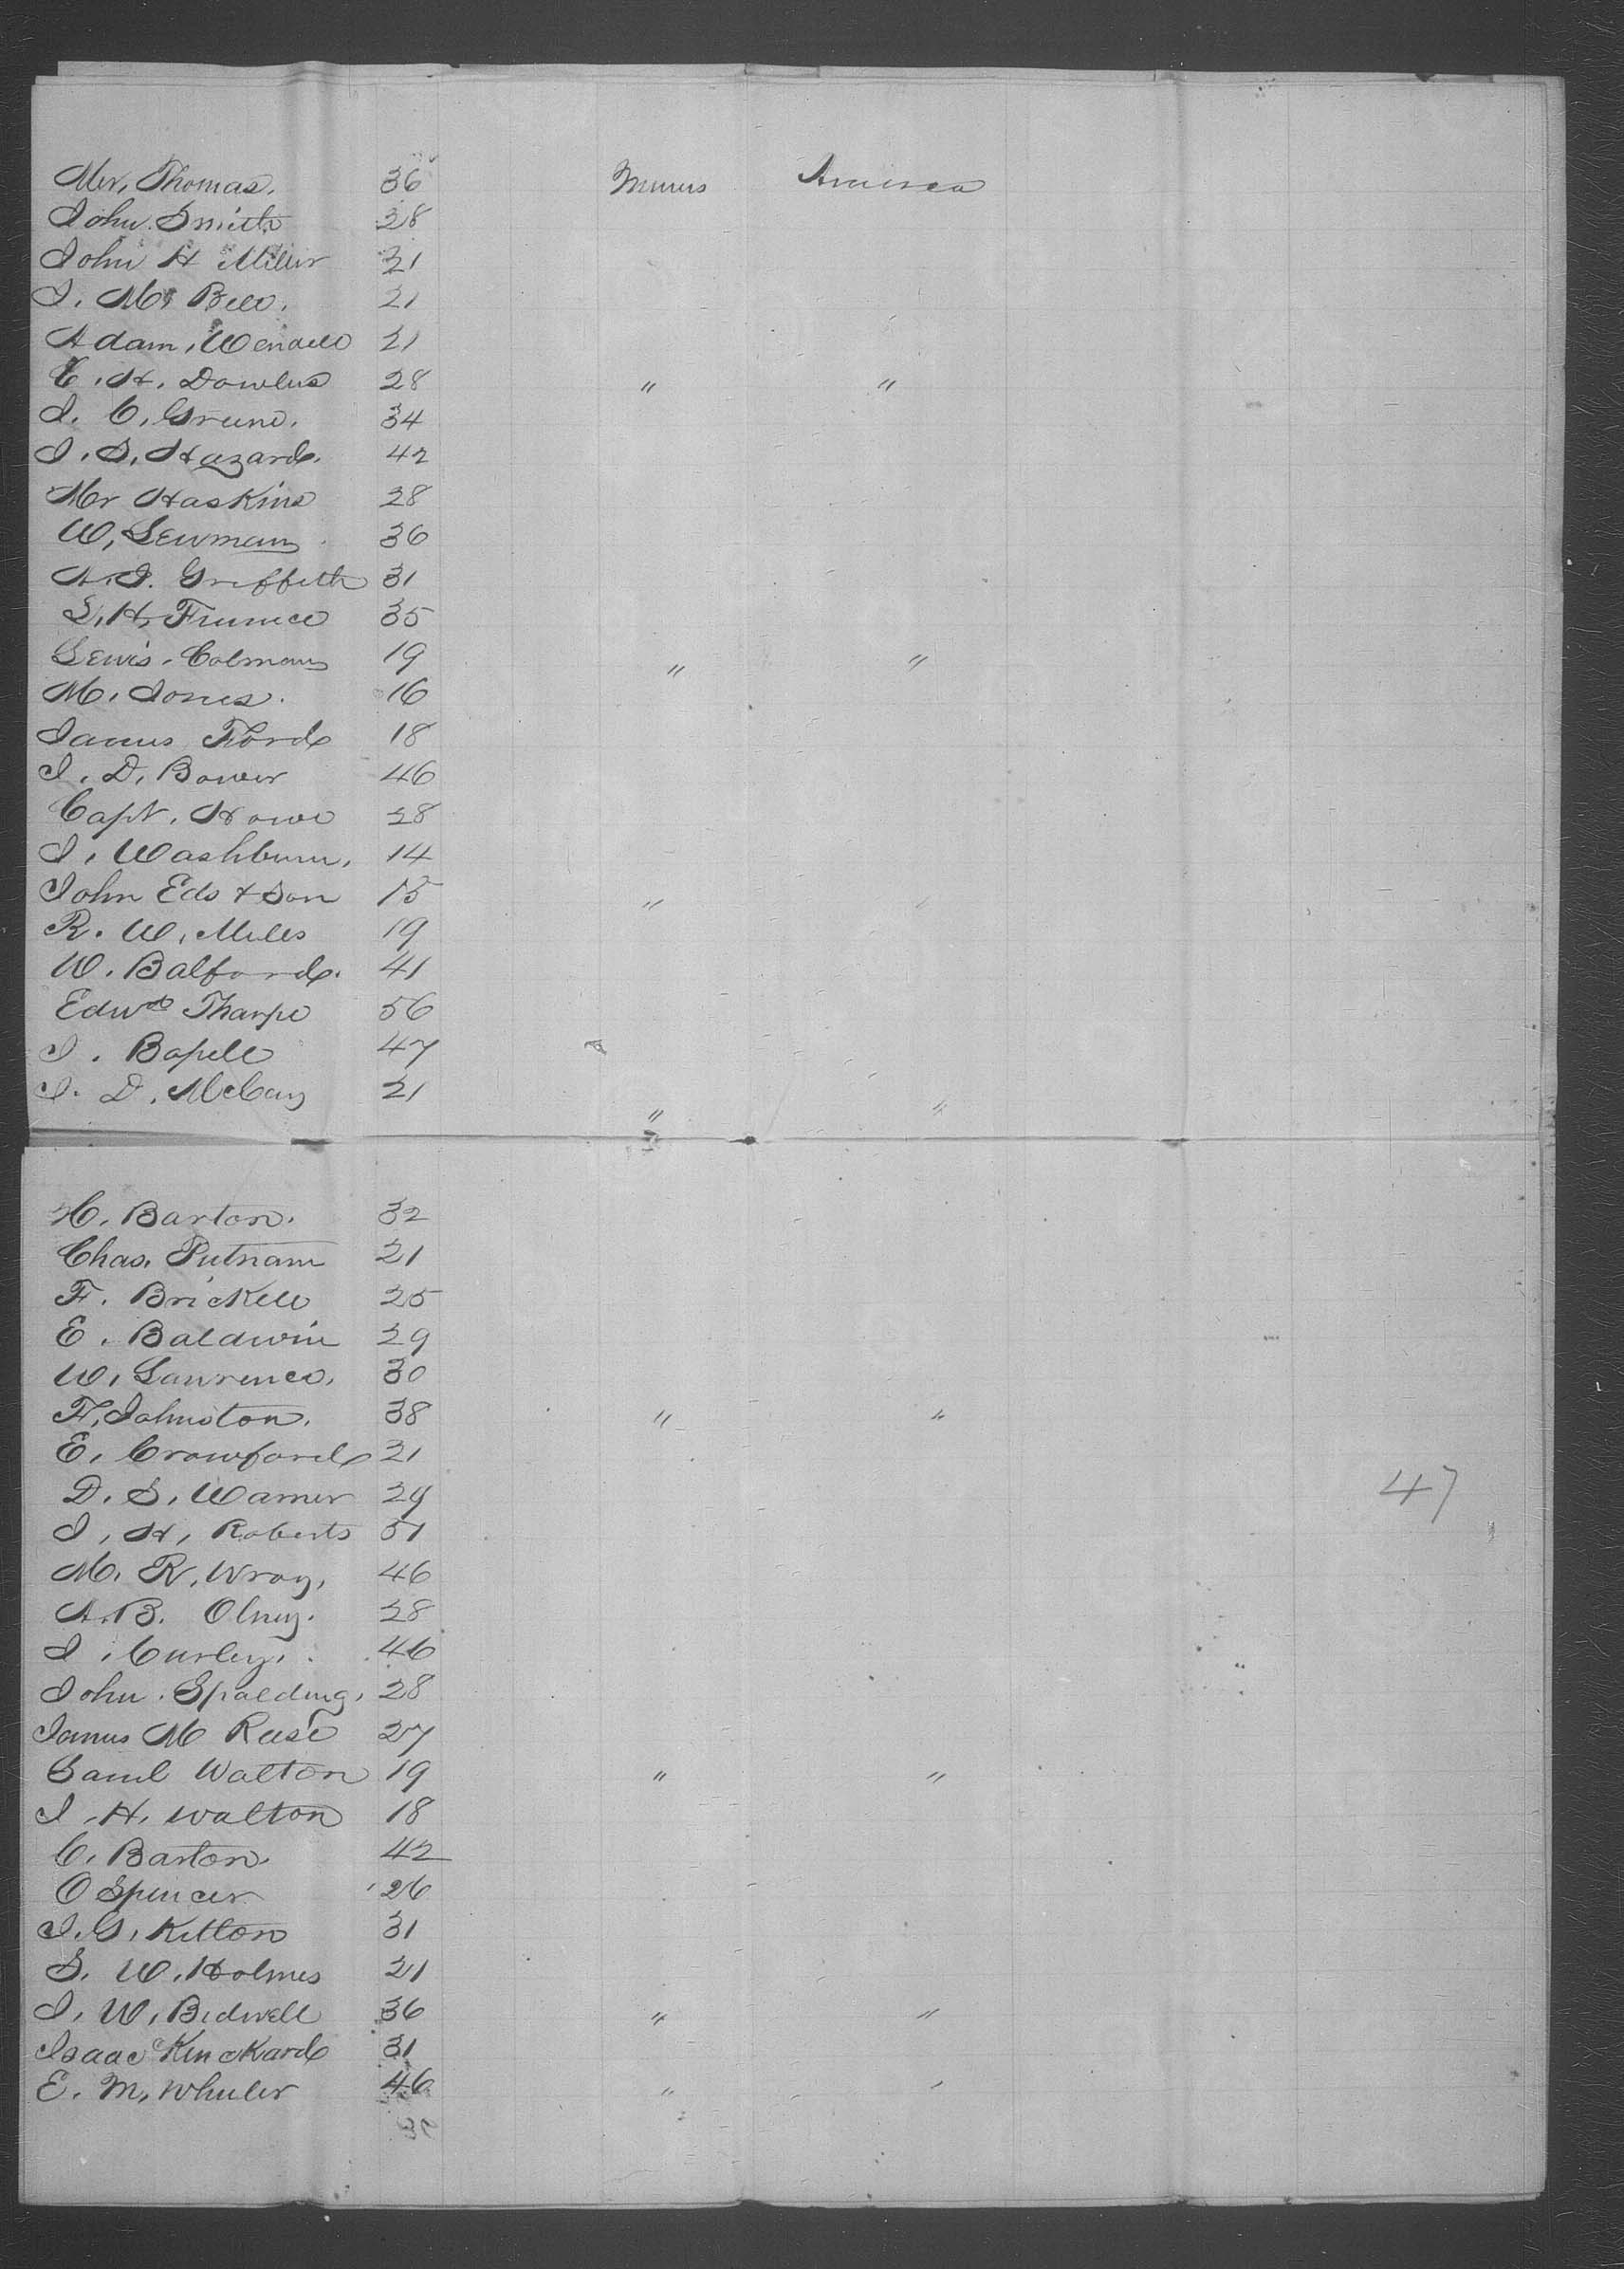 Mr, Thomas. 36 Miners America
John Smith 28
John H Miller 21
J. M. Bell. 21
Adam, Wendell 21
E. H. Dowlus 28 " "
J. C. Greene. 34
J. S. Hazard. 42
Mr Haskins 28
W, Lewman 36
A. J. Griffeth 31
S. H. 35
Lewis. Colman 19 " "
M. Jones. 16
James Ford 18
J. D. Bower 46
Capt. Howe 28
J. Washburn. 14
John Eds & Son 15 " "
R. W. Mills 19
W. Balford. 41
Edwd Tharpe 56
J. Bapell 47
J. D. McCay 21 " "
C. Barton. 32
Chas. Putnam 21
F. Brickell 25
E. Baldwin 29
W. Lawrence. 30
F. Johnston. 38 " "
E. Crawford 21
D. S. Warner 29 47
J, H, Roberts 51
M. R. Wray, 46
A. B. Olney. 28
J. Curley. 46
John. Spalding, 28
James M Rese 27
Saml Walton 19 " "
J. H. Walton 18
C. Barton. 42
O Spencer 26
J. G. Kitton 31
S. W. Holmes 21
J. W. Bidwell 36 " "
Isaac Kinckard 31
E. M. Wheeler 46 " "